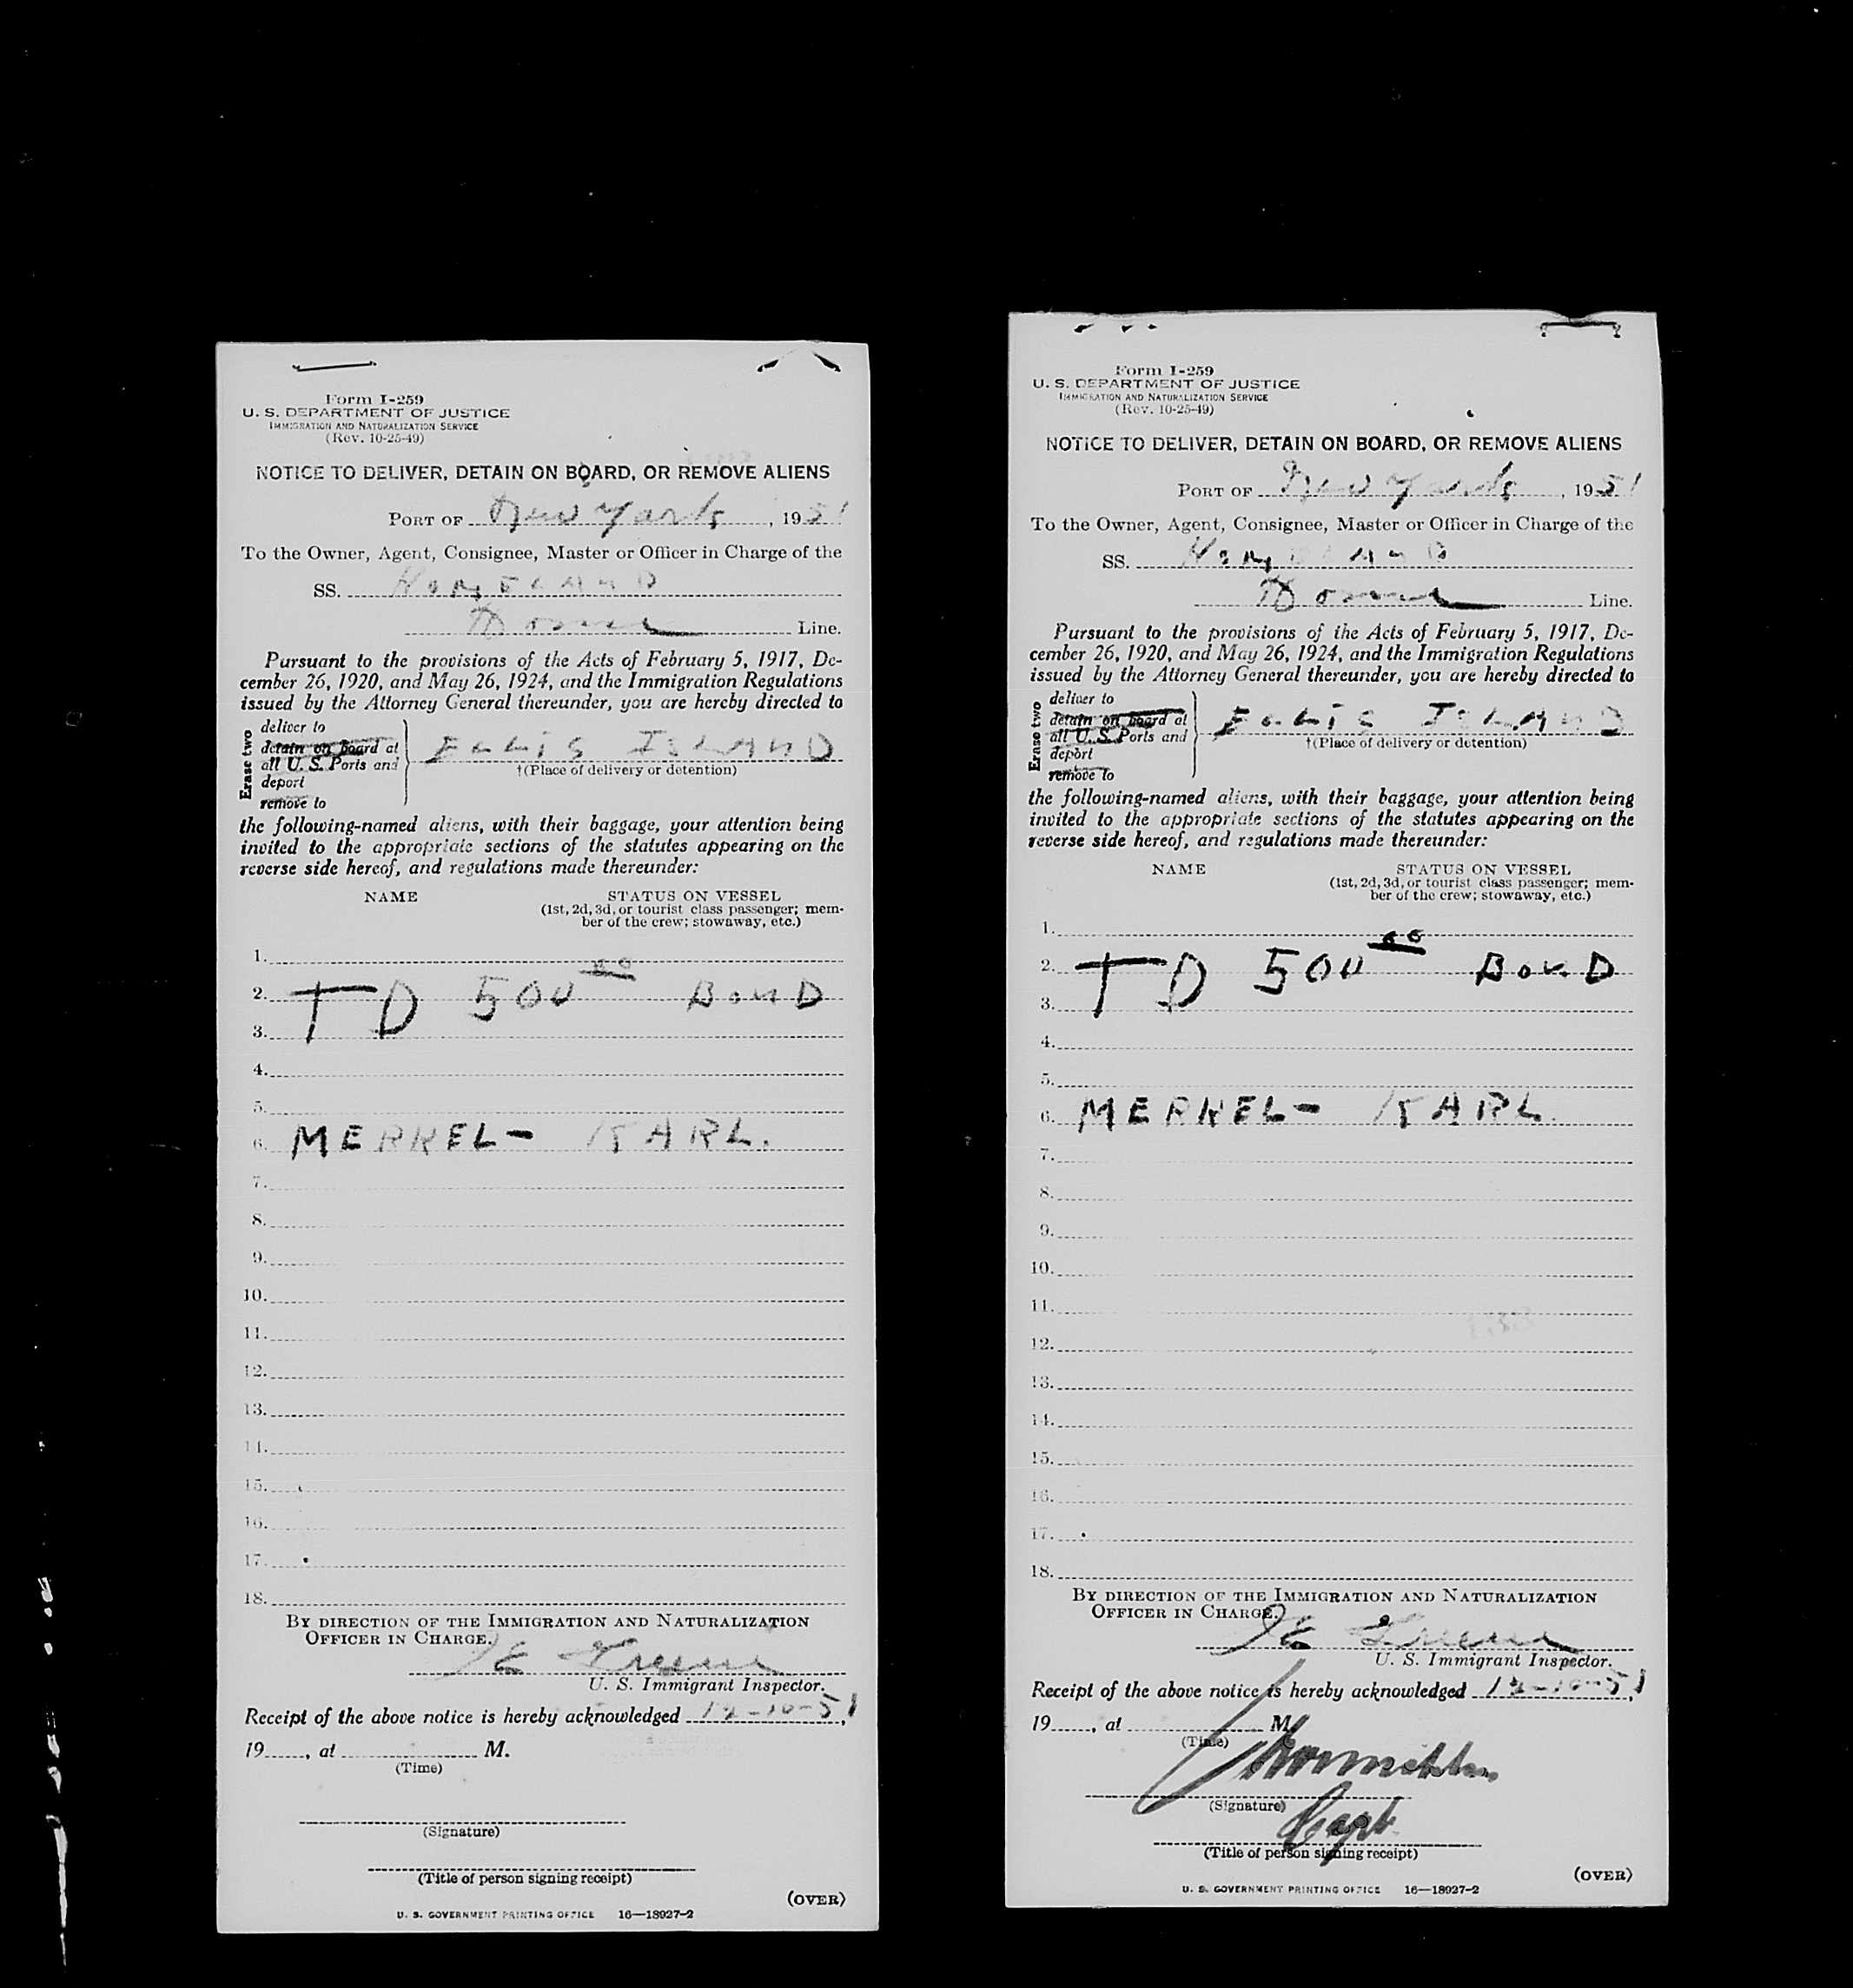 Form I-259
U. S. DEPARTMENT OF JUSTICE
IMMIGRATION AND NATURALIZATION SERVICE
(Rev. 10-25-49)
NOTICE TO DELIVER, DETAIN ON BOARD, OR REMOVE ALIENS
PORT OF New York, 1951
To the Owner, Agent, Consignee, Master or Officer in Charge of the
SS. HOMELAND
Home Line.
Pursuant to the provisions of the Acts of February 5, 1917, De-
cember 26, 1920, and May 26, 1924, and the Immigration Regulations
issued by the Attorney General thereunder, you are hereby directed to
Erase two
deliver to
detain on board at
all U. S. Ports and
deport
remove to
ELLIS ISLAND
†(Place of delivery or detention)
the following-named aliens, with their baggage, your attention being
invited to the appropriate sections of the statutes appearing on the
reverse side hereof, and regulations made thereunder:
NAME STATUS ON VESSEL
(1st, 2d, 3d, or tourist class passenger; mem-
ber of the crew; stowaway, etc.)
1.
2. TD 500 00 BOND
3.
4.
5.
6. MERKEL- KARL.
7.
8.
9.
10.
11.
12.
13.
14.
15.
16.
17.
18.
BY DIRECTION OF THE IMMIGRATION AND NATURALIZATION
OFFICER IN CHARGE.
Greene
U. S. Immigrant Inspector.
Receipt of the above notice is hereby acknowledged 12-10-51,
19, at M.
(Time)
(Signature)
(Title of person signing receipt)
(OVER)
U. S. GOVERNMENT PRINTING OFFICE 16—18927-2
Form I-259
U. S. DEPARTMENT OF JUSTICE
IMMIGRATION AND NATURALIZATION SERVICE
(Rev. 10-25-49)
NOTICE TO DELIVER, DETAIN ON BOARD, OR REMOVE ALIENS
PORT OF New York, 1951
To the Owner, Agent, Consignee, Master or Officer in Charge of the
SS. HOMELAND
Home Line.
Pursuant to the provisions of the Acts of February 5, 1917, De-
cember 26, 1920, and May 26, 1924, and the Immigration Regulations
issued by the Attorney General thereunder, you are hereby directed to
Erase two
deliver to
detain on board at
all U. S. Ports and
deport
remove to
ELLIS ISLAND
†(Place of delivery or detention)
the following-named aliens, with their baggage, your attention being
invited to the appropriate sections of the statutes appearing on the
reverse side hereof, and regulations made thereunder:
NAME STATUS ON VESSEL
(1st, 2d, 3d, or tourist class passenger; mem-
ber of the crew; stowaway, etc.)
1.
2. TD 500 00 BOND
3.
4.
5.
6. MERKEL- KARL.
7.
8.
9.
10.
11.
12.
13.
14.
15.
16.
17.
18.
BY DIRECTION OF THE IMMIGRATION AND NATURALIZATION
OFFICER IN CHARGE.
Greene
U. S. Immigrant Inspector.
Receipt of the above notice is hereby acknowledged 12-10-51,
19, at M.
(Time)
(Signature)
Capt.
(Title of person signing receipt)
(OVER)
U. S. GOVERNMENT PRINTING OFFICE 16—18927-2